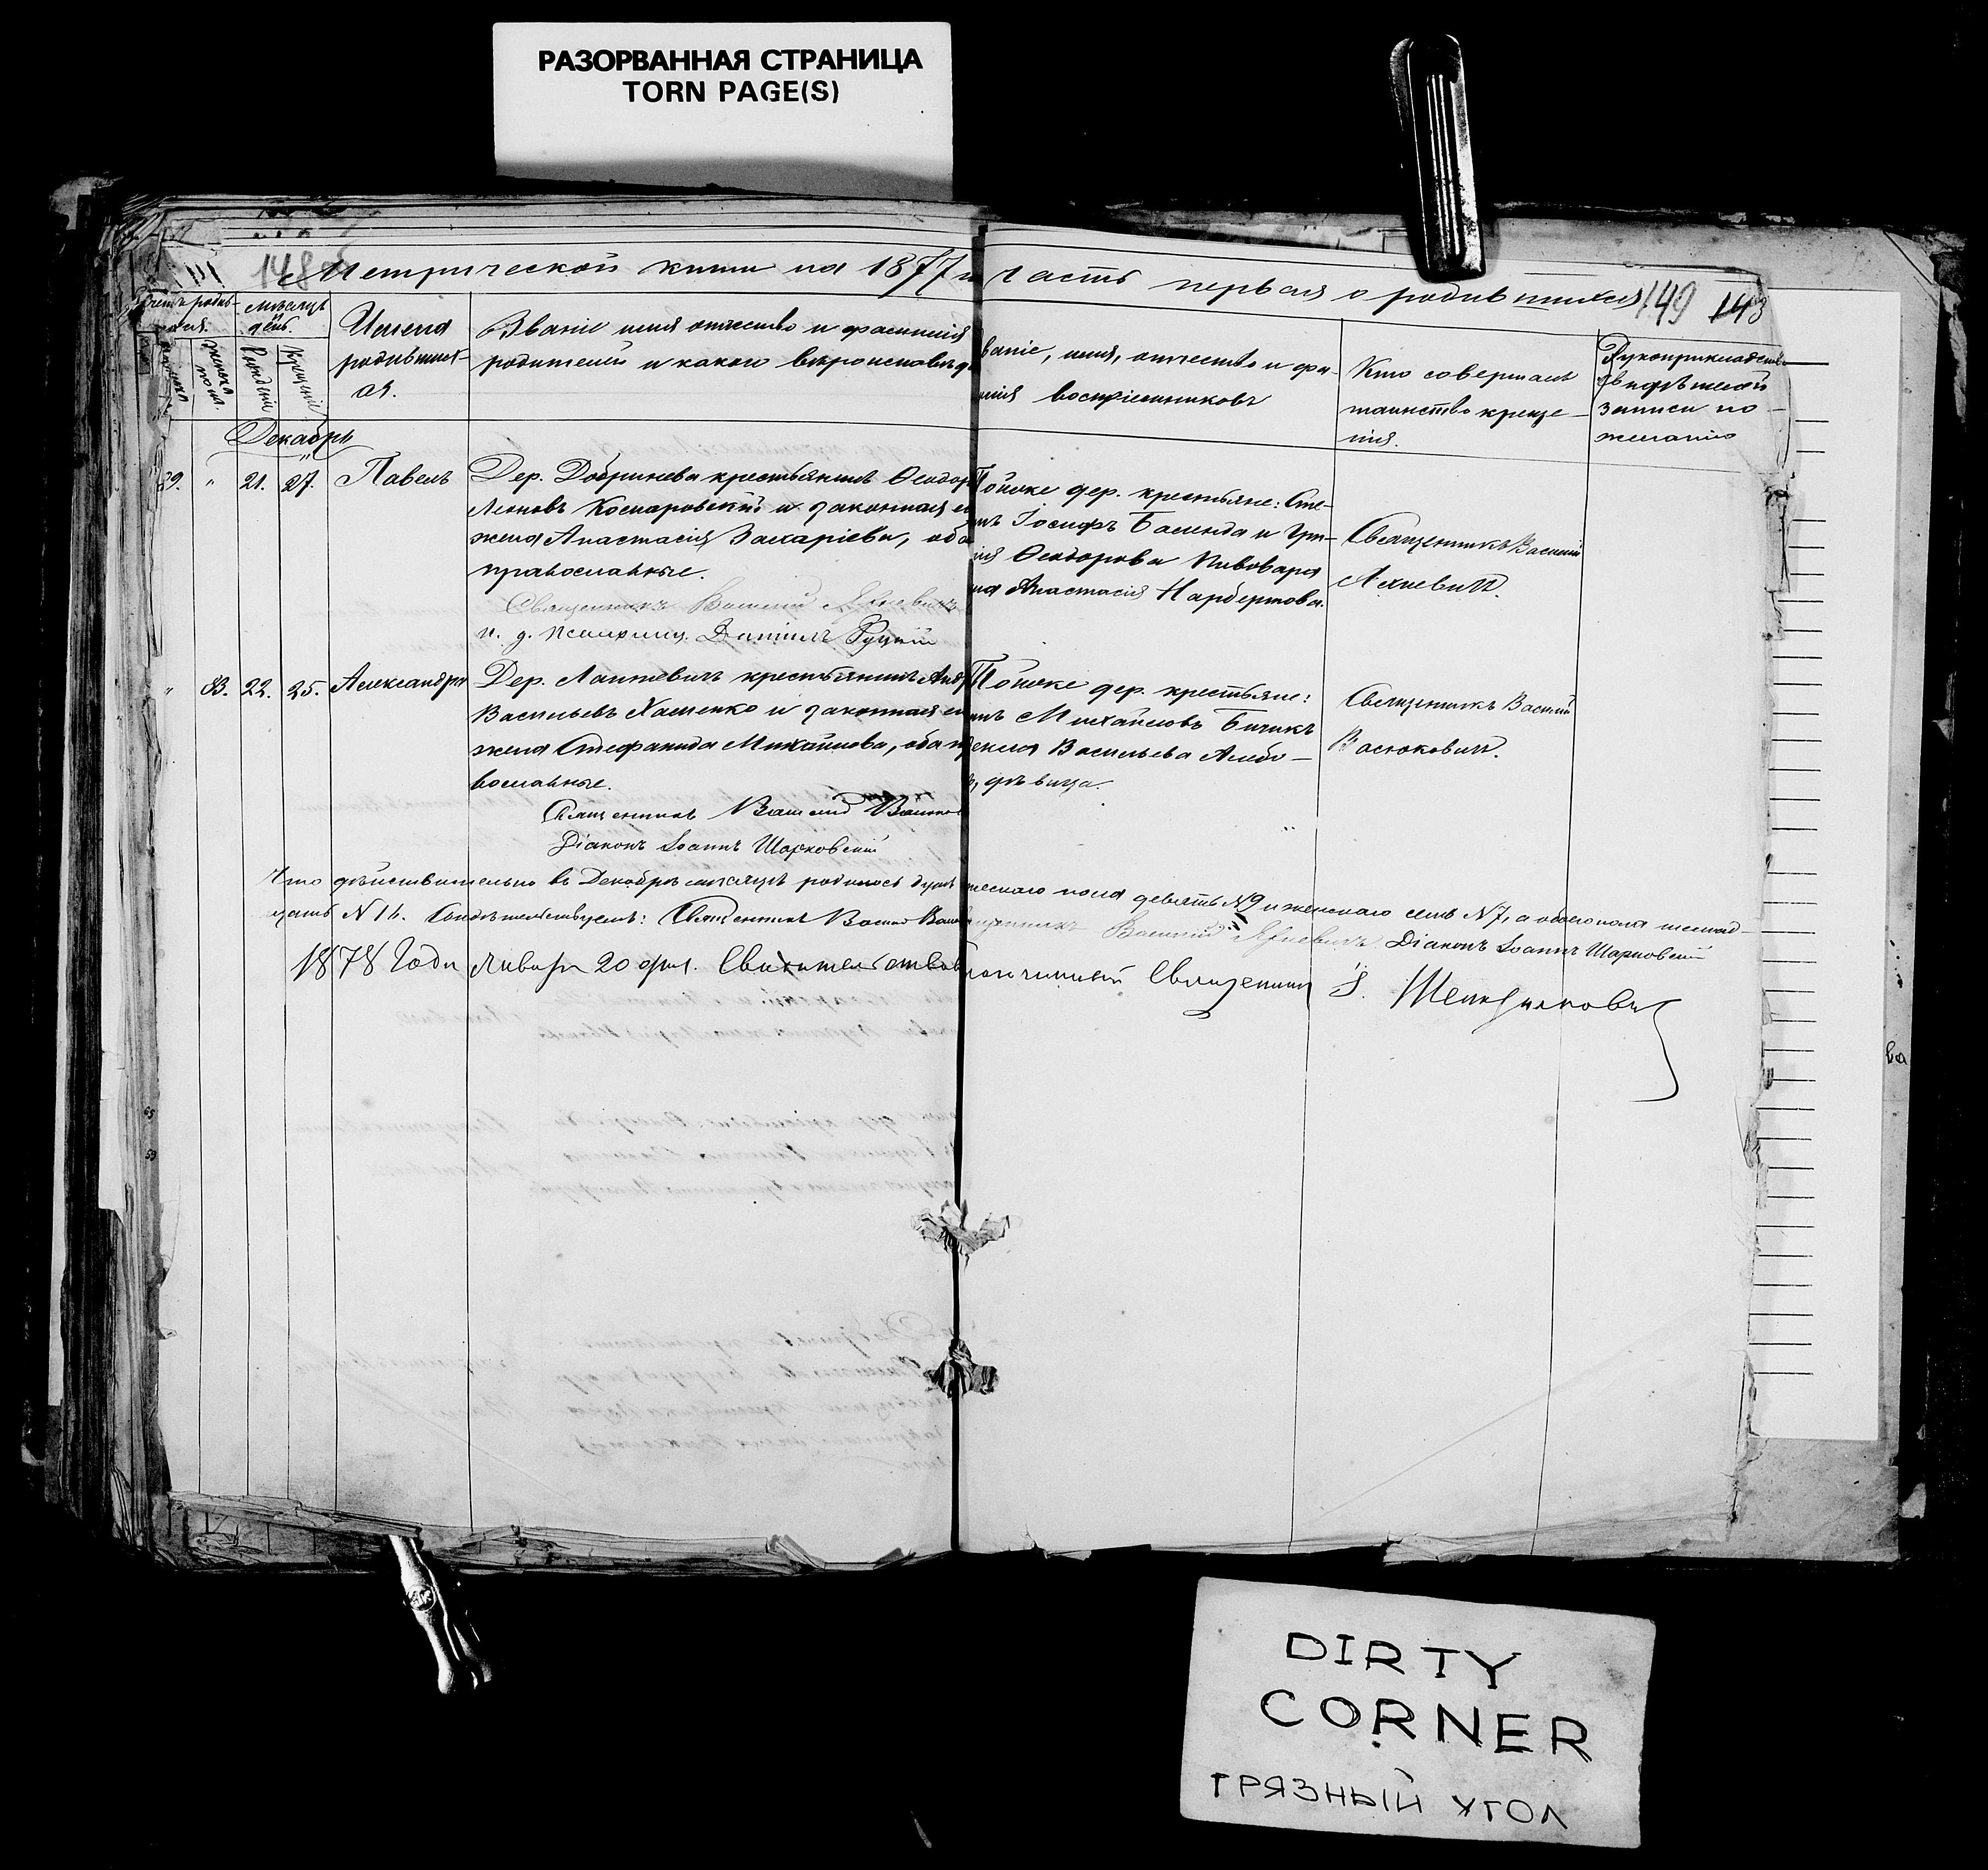 РАЗОРВАННАЯ СТРАНИЦА
TORN PAGE(S)
148
Метрической книги на 1877 г.
Часть первая о родившихся
149 143
Мѣсяцъ
день.
Рожденія
Крещенія
женска
пола.
Имена
родившихся.
Званіе имя отчество и фамилія
родителей и какого вѣроисповѣд
ваніе, имя, отчество и фа-
милія воспріемниковъ
Кто совершалъ
таинство креще-
нія.
Рукоприкладство
свидѣтелей
записи по
желанію
Декабрь
29. " 21. 27. Павелъ
Дер. Добринева крестьянинъ Ѳеодоръ
Леоновъ Комаровскій и законная ег
жена Анастасія Захаріева, оба
православные.
Священникъ Василій Яхневичъ
и. д. псаломщ. Данилъ Руцкій
Тойже дер. крестьяне: Сте-
Іосифъ Баленда и Гри-
Ѳеодорова Пивовара
Анастасія Нарбертова.
Священникъ Василій
Яхневичъ.
" 33. 22. 25. Александра
Дер. Лаптевичъ крестьянинъ Анд
Васильевъ Хаменко и законная ег
жена Стефанида Михайлова, оба пра
вославные.
Священникъ Василій
Діаконъ Іоаннъ Шарковскій
Тойже дер. крестьяне:
Михайловъ Бичикъ
Васильева
дѣвица.
Священникъ Василій
Васюковичъ.
Что дѣйствительно въ Декабрѣ мѣсяцѣ родилось душъ
мескаго пола девять №9 и женскаго семь №7, а обоего пола шестнад-
цать №16. Свидѣтельствуемъ: Священникъ Василій
Священникъ Василій Яхневичъ. Діаконъ Іоаннъ Шарковскій
1878 Года Января 20 дня. Свидѣтельствовалъ
Благочинный Священникъ І.
DIRTY
CORNER
ГРЯЗНЫЙ УГОЛ